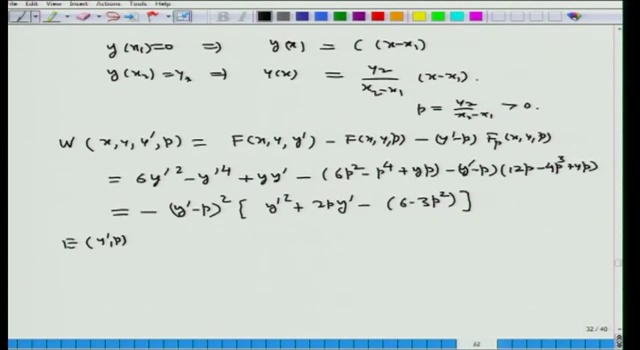 File Edit View Insert Actions Tools Help
y(x₁)=0 ⇒ y(x) = C (x-x₁)
y(x₂)=y₂ ⇒ y(x) = y₂/(x₂-x₁) (x-x₁).
p = y₂/(x₂-x₁) > 0.
W (x, y, y', p) = F(x, y, y') - F(x, y, p) - (y'-p) F_p (x, y, p)
= 6y'² - y'⁴ + yy' - (6p² - p⁴ + yp) - (y'-p)(12p - 4p³ + y)
= - (y'-p)² [ y'² + 2py' - (6-3p²) ]
E (y', p)
32 / 40
32